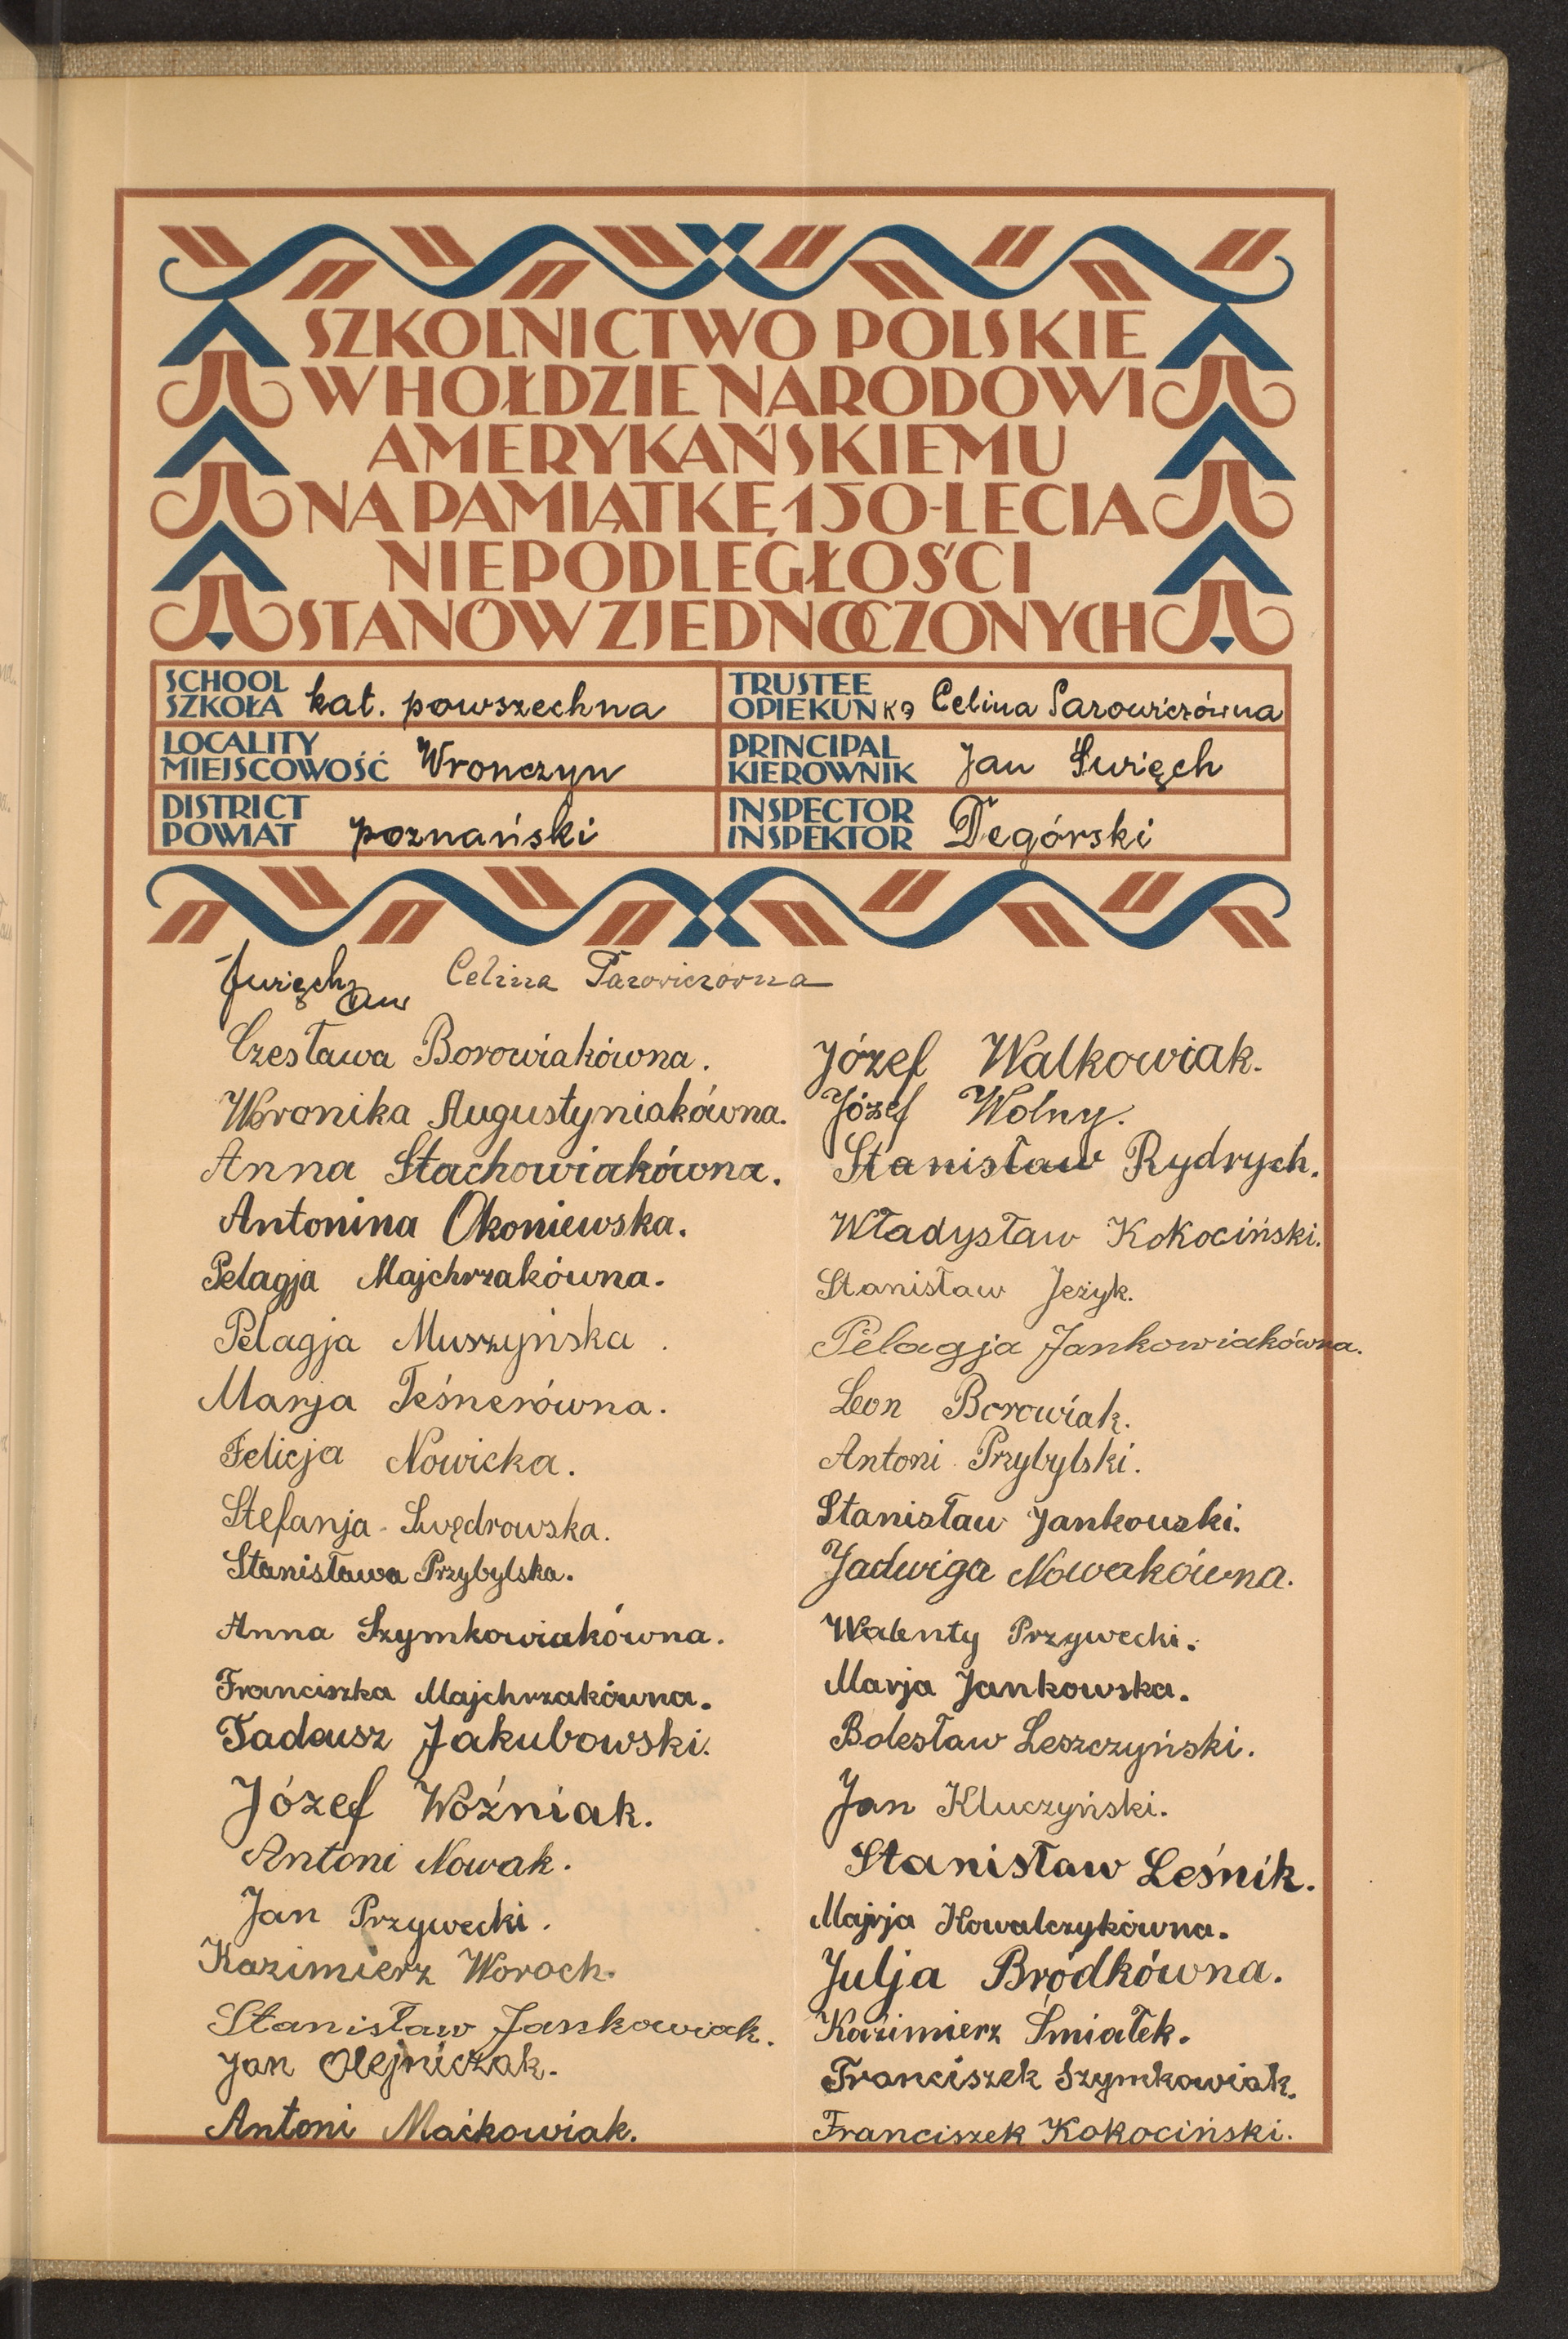 SZKOLNICTWO POLSKIE
W HOŁDZIE NARODOWI
AMERYKAŃSKIEMU
NA PAMIĄTKĘ 150-LECIA
NIEPODLEGŁOŚCI
STANÓW ZJEDNOCZONYCH
SCHOOL
SZKOŁA kat. powszechna
TRUSTEE
OPIEKUNKA Celina Parowiczówna
LOCALITY
MIEJSCOWOŚĆ Wronczyn
PRINCIPAL
KIEROWNIK Jan Święch
DISTRICT
POWIAT poznański
INSPECTOR
INSPEKTOR Degórski
Święch Jan Celina Parowiczówna
Czesława Borowiakówna.
Weronika Augustyniakówna.
Anna Stachowiakówna.
Antonina Okoniewska.
Pelagja Majchrzakówna.
Pelagja Muszyńska.
Marja Teśnerówna.
Felicja Nowicka.
Stefanja Swędrowska.
Stanisława Przybylska.
Anna Szymkowiakówna.
Franciszka Majchrzakówna.
Tadeusz Jakubowski.
Józef Woźniak.
Antoni Nowak.
Jan Przywecki.
Kazimierz Woroch.
Stanisław Jankowiak.
Jan Olejniczak.
Antoni Maćkowiak.
Józef Walkowiak.
Józef Wolny.
Stanisław Rydrych.
Władysław Kokociński.
Stanisław Jeżyk.
Pelagja Jankowiakówna.
Leon Borowiak.
Antoni Przybylski.
Stanisław Jankowski.
Jadwiga Nowakówna.
Walenty Przywecki.
Marja Jankowska.
Bolesław Leszczyński.
Jan Kluczyński.
Stanisław Leśnik.
Marja Kowalczykówna.
Julja Bródkówna.
Kazimierz Śmiałek.
Franciszek Szymkowiak.
Franciszek Kokociński.